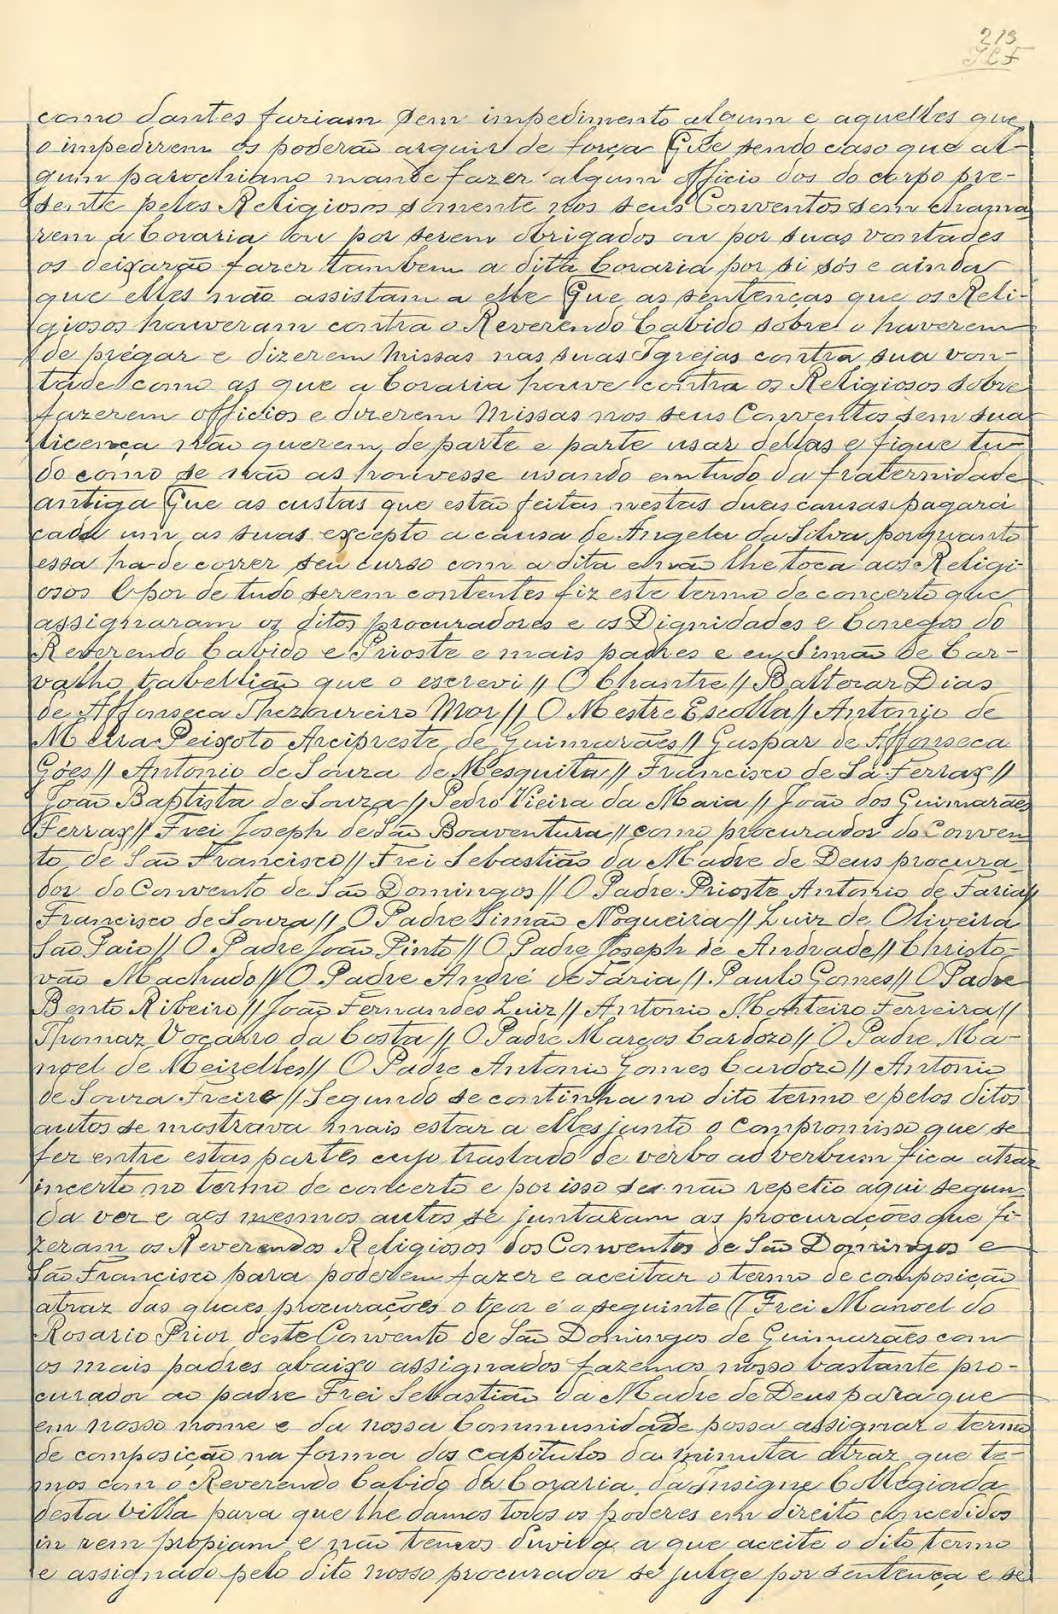 213
JCF
como dantes fariam sem impedimento algum e aquelles que
o impedirem os poderão arguir de força Que sendo caso que al-
gum parochiano mande fazer algum officio dos do corpo pre-
sente pelos Religiosos somente nos seus Conventos sem chama-
rem a Coraria ou por serem obrigados ou por suas vontades
os deixarão fazer tambem a dita Coraria por si sós e ainda
que elles não assistam a elle Que as sentenças que os Reli-
giosos houveram contra o Reverendo Cabido sobre o haverem
de prégar e dizerem Missas nas suas Igrejas contra sua von-
tade como as que a Coraria houve contra os Religiosos sobre
fazerem officios e dizerem Missas nos seus Conventos sem sua
licença não querem de parte e parte usar dellas e fique tu-
do como se não as houvesse usando em tudo da fraternidade
antiga Que as custas que estão feitas nestas duas causas pagará
cada um as suas excepto a causa de Angela da Silva porquanto
essa ha de correr seu curso com a dita e não lhe toca aos Religi-
osos E por de tudo serem contentes fiz este termo de concerto que
assignaram os ditos procuradores e os Dignidades e Conegos do
Reverendo Cabido e Prioste e mais padres e eu Simão de Car-
valho tabellião que o escrevi // O Chantre // Baltezar Dias
de Affonseca Thezoureiro Mor // O Mestre Escolla // Antonio de
Meira Peixoto Arcipreste de Guimarães // Gaspar de Affonseca
Góes // Antonio de Souza de Mesquita // Francisco de Sá Ferraz //
João Baptista de Souza // Pedro Vieira da Maia // João dos Guimarães
Ferraz // Frei Joseph de São Boaventura // como procurador do Conven-
to de São Francisco // Frei Sebastião da Madre de Deus procura-
dor do Convento de São Domingos // O Padre Prioste Antonio de Faria //
Francisco de Souza // O Padre Simão Nogueira // Luiz de Oliveira
São Paio // O Padre João Pinto // O Padre Joseph de Andrade // Christo-
vão Machado // O Padre André de Faria // Paulo Gomes // O Padre
Bento Ribeiro // João Fernandes Luiz // Antonio Monteiro Ferreira //
Thomaz Vogarro da Costa // O Padre Marcos Cardozo // O Padre Ma-
noel de Meirelles // O Padre Antonio Gomes Cardozo // Antonio
de Souza Freire // Segundo se continha no dito termo e pelos ditos
autos se mostrava mais estar a elles junto o compromisso que se
fez entre estas partes cujo traslado de verbo ad verbum fica atraz
incerto no termo de concerto e por isso se não repetio aqui segun-
da vez e aos mesmos autos se juntaram as procurações que fi-
zeram os Reverendos Religiosos dos Conventos de São Domingos e
São Francisco para poderem fazer e aceitar o termo de composição
atraz das quaes procurações o teor é o seguinte // Frei Manoel do
Rosario Prior deste Convento de São Domingos de Guimarães com
os mais padres abaixo assignados fazemos nosso bastante pro-
curador ao padre Frei Sebastião da Madre de Deus para que
em nosso nome e da nossa Communidade possa assignar o termo
de composição na forma dos capitulos da minuta atraz que te-
mos com o Reverendo Cabido da Coraria da Insigne Collegiada
desta villa para que lhe damos todos os poderes em direito concedidos
in rem propiam e não temos duvida a que aceite o dito termo
e assignado pelo dito nosso procurador se julge por sentença e se